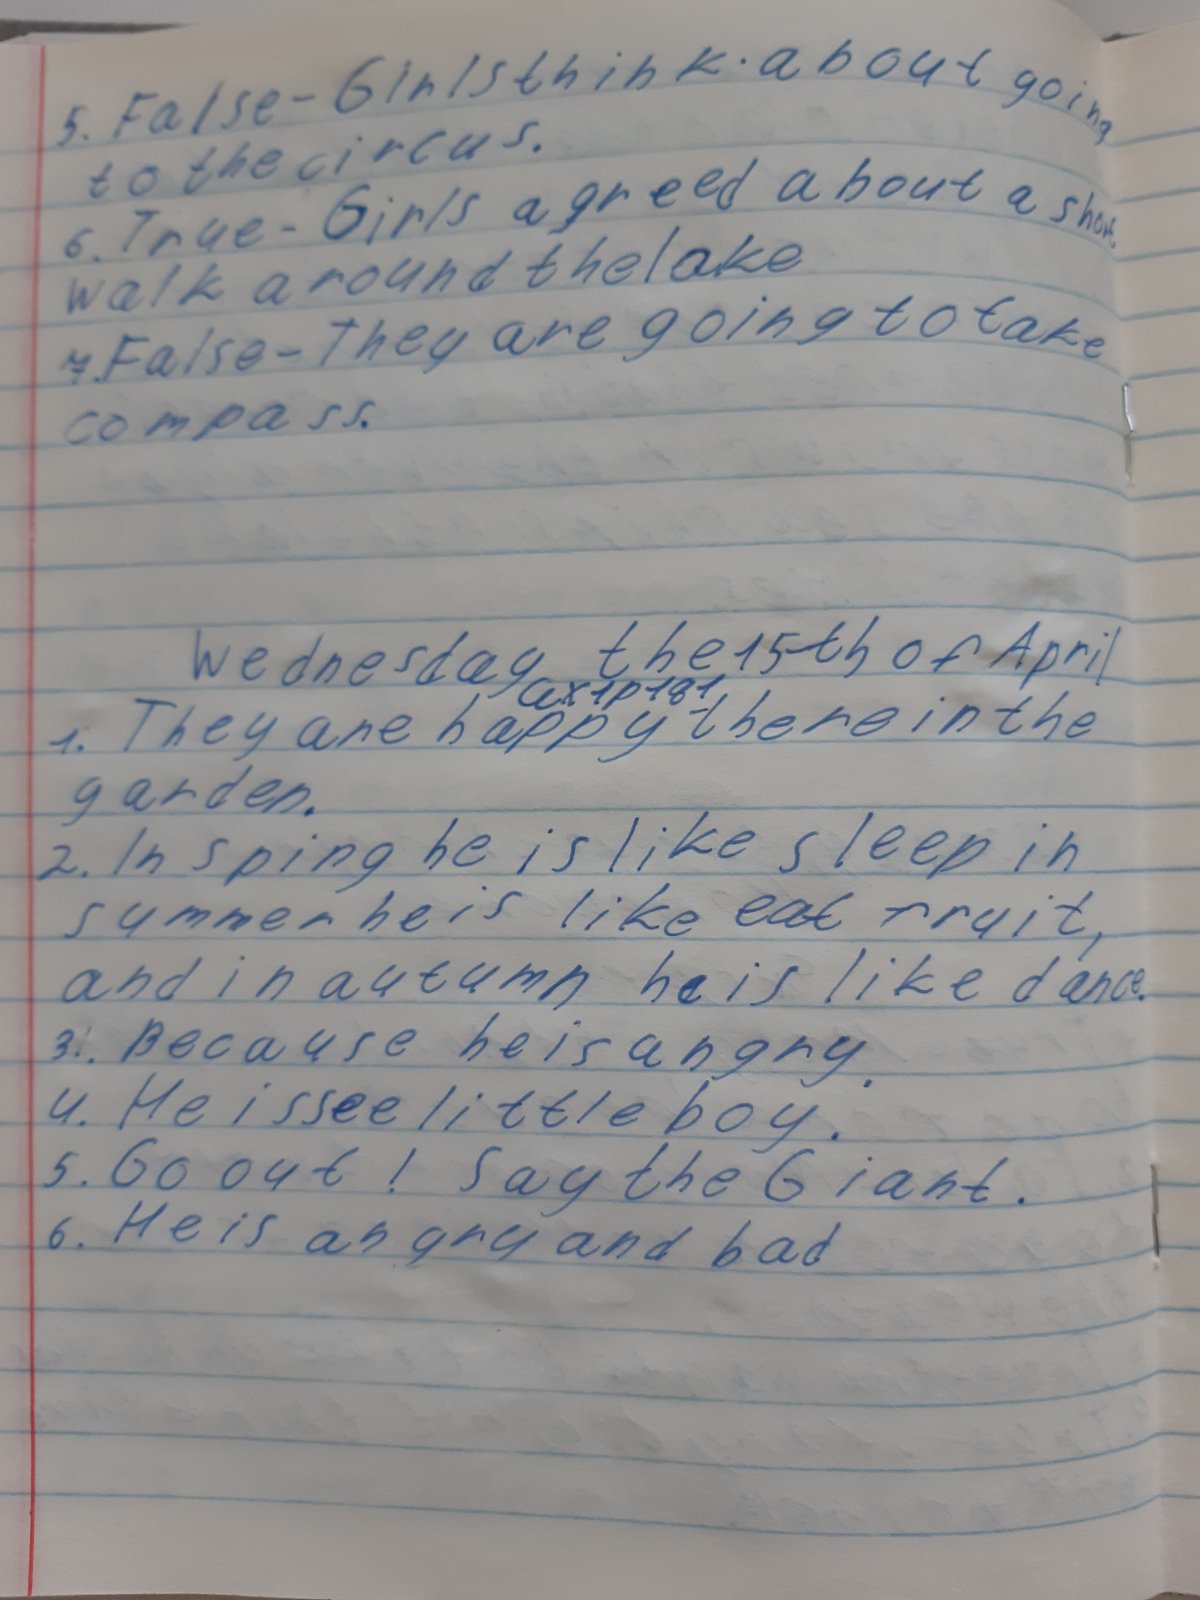 5. False - Girls think about going
to the circus.
6. True - Girls agreed about a short
walk around the lake
7. False - They are going to take
compass.
Wednesday the 15th of April
ex1p181
1. They are happy there in the
garden.
2. In sping he is like sleep in
summer he is like eat fruit,
and in autumn he is like dance.
3. Because he is angry.
4. He is see little boy.
5. Go out! Say the Giant.
6. He is angry and bad